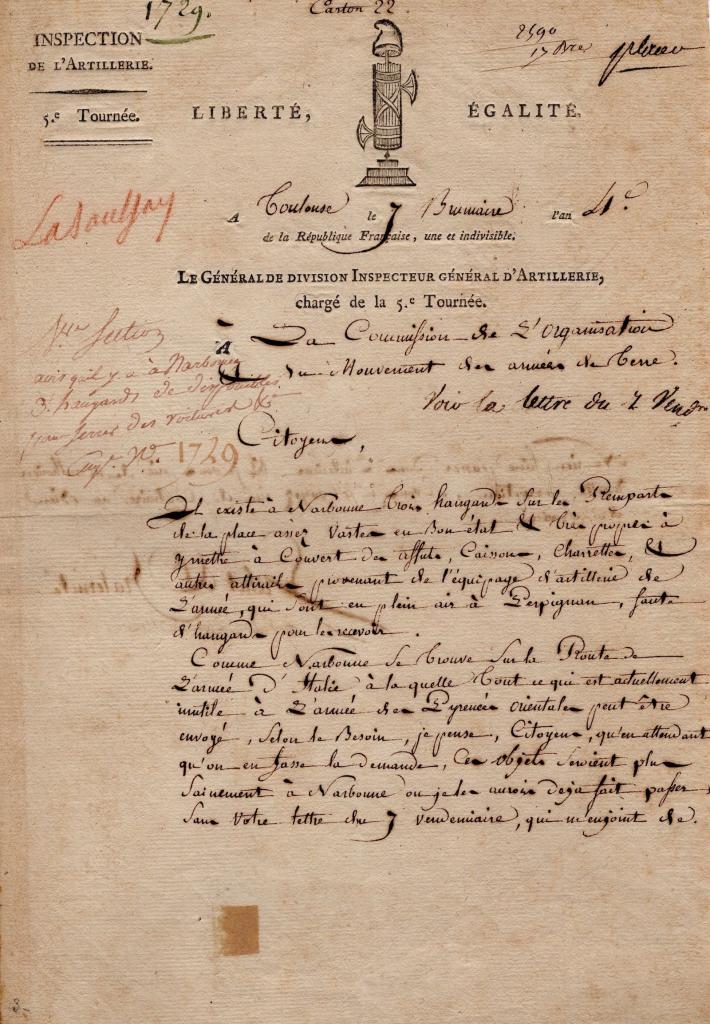 1729.
Carton 22
INSPECTION
DE L'ARTILLERIE.
2590
5.e Tournée.
LIBERTÉ, ÉGALITÉ.
LaSaulsay
A Toulouse le 7 Brumaire l'an 4.e
de la République Française, une et indivisible.
LE GÉNÉRAL DE DIVISION INSPECTEUR GÉNÉRAL D'ARTILLERIE,
chargé de la 5.e Tournée.
À La Commission de L'organisation
du Mouvement des armées de Terre.
Voir la lettre du 7 Vend.re
Section
avis qu'il y a à Narbonne
3. hangards de disponibles
pour serrer des voitures &a
N.o 1729
Citoyens,
Il existe à Narbonne Trois hangards Sur les Remparts
de la place assez Vastes en Bon état & très propres à
y mettre à Couvert des affuts, Caissons, Charrettes, &
autres attirails provenant de l'équipage d'artillerie de
L'armée, qui Sont en plein air à Perpignan, faute
d'hangards pour les recevoir.
Comme Narbonne Se trouve Sur la Route de
L'armée d'Italie, à la quelle Tout ce qui est actuellement
inutile à L'armée des Pyrenées orientales peut être
envoyé, Selon le Besoin, je pense, Citoyens, qu'en attendant
qu'on en fasse la demande, Ces objets Seroient plus
Sainement à Narbonne ou je les aurois deja fait passer,
Sans Votre lettre du 7 vendemiaire, qui m'enjoint de.
3.